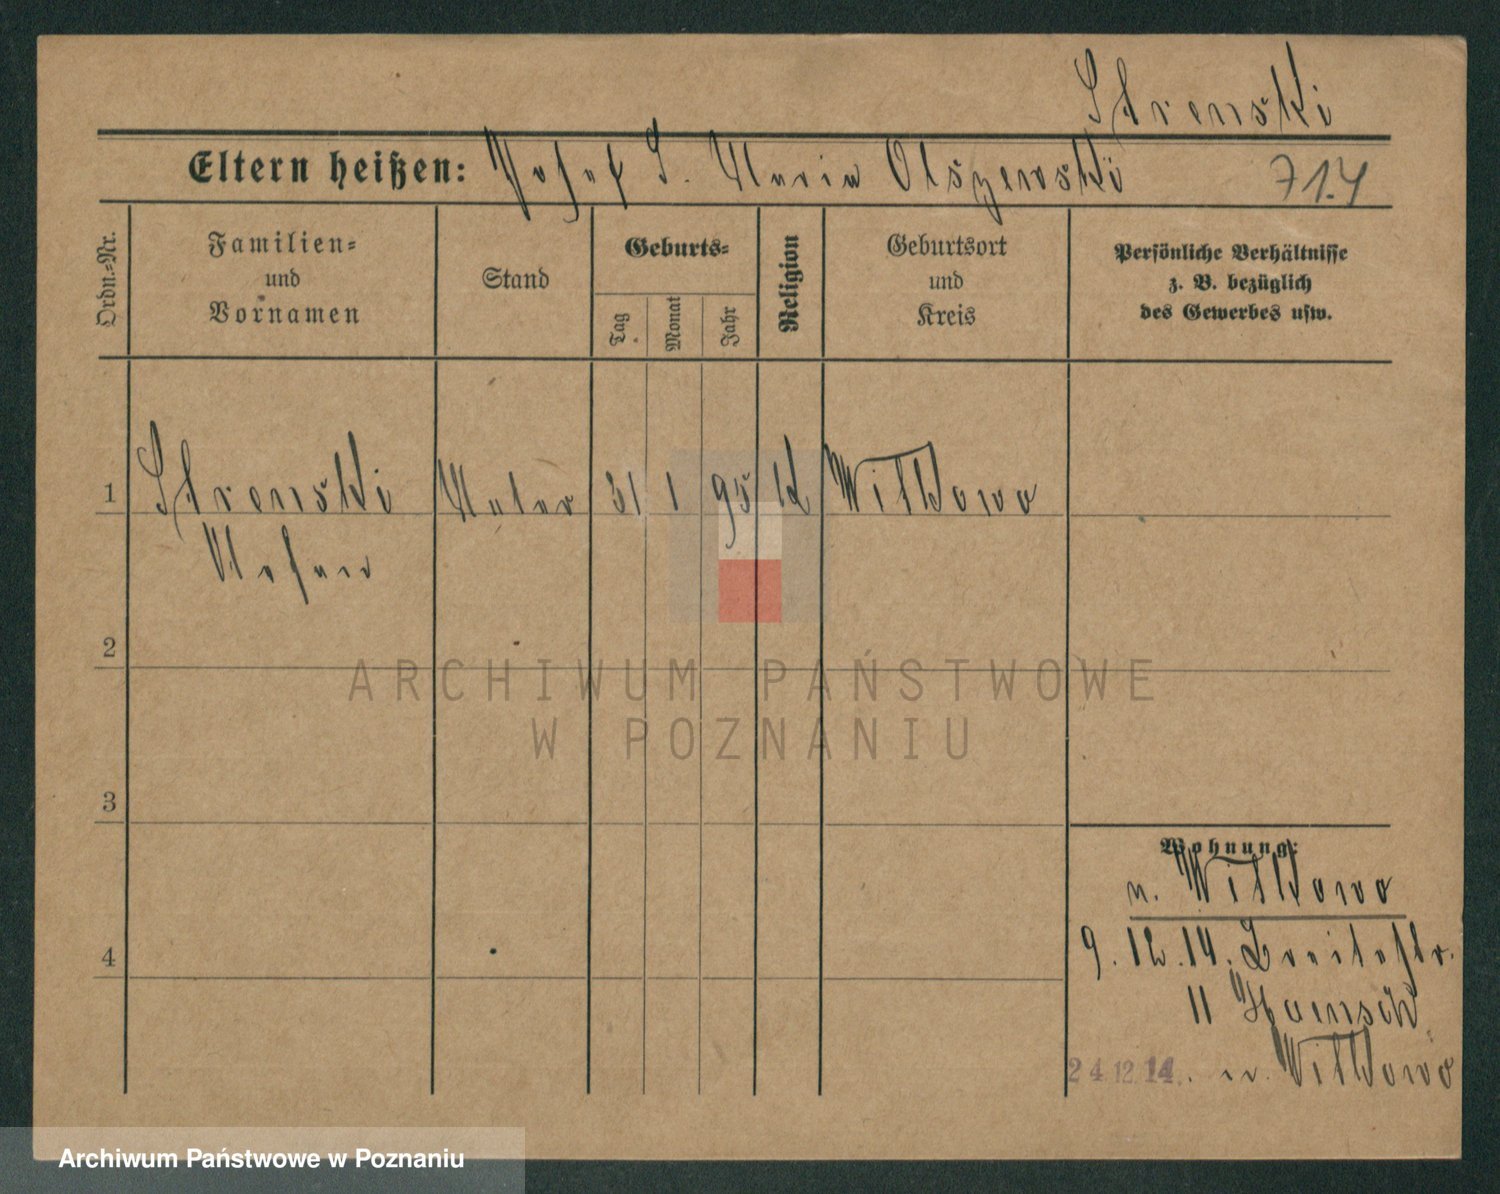 Strenski
Eltern heißen: Josef S. Maria Olszewski 71.4
Ordn.=Nr.
Familien=
und
Vornamen
Stand
Geburts=
Tag
Monat
Jahr
Religion
Geburtsort
und
Kreis
Persönliche Verhältnisse
z. B. bezüglich
des Gewerbes usw.
1 Strenski Maler 31 1 95 K Witkowo
2
3
4
Wohnung:
n. Witkowo
9. 12. 14. Breitestr.
11 Haensch
24.12.14. n. Witkowo
ARCHIWUM PAŃSTWOWE
W POZNANIU
Archiwum Państwowe w Poznaniu